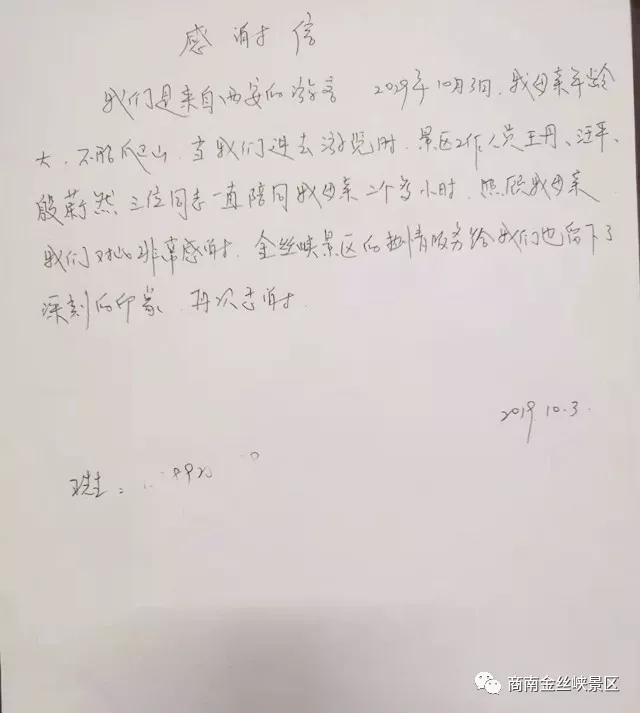 感谢信
我们是来自西安的游客 2019年10月3日，我母亲年龄
大，不能爬山，当我们进去游览时，景区工作人员王丹、汪平、
殷蔚然三位同志一直陪同我母亲二个多小时，照顾我母亲
我们对她非常感谢，金丝峡景区的热情服务给我们也留下了
深刻的印象，再次感谢
2019.10.3.
商南金丝峡景区